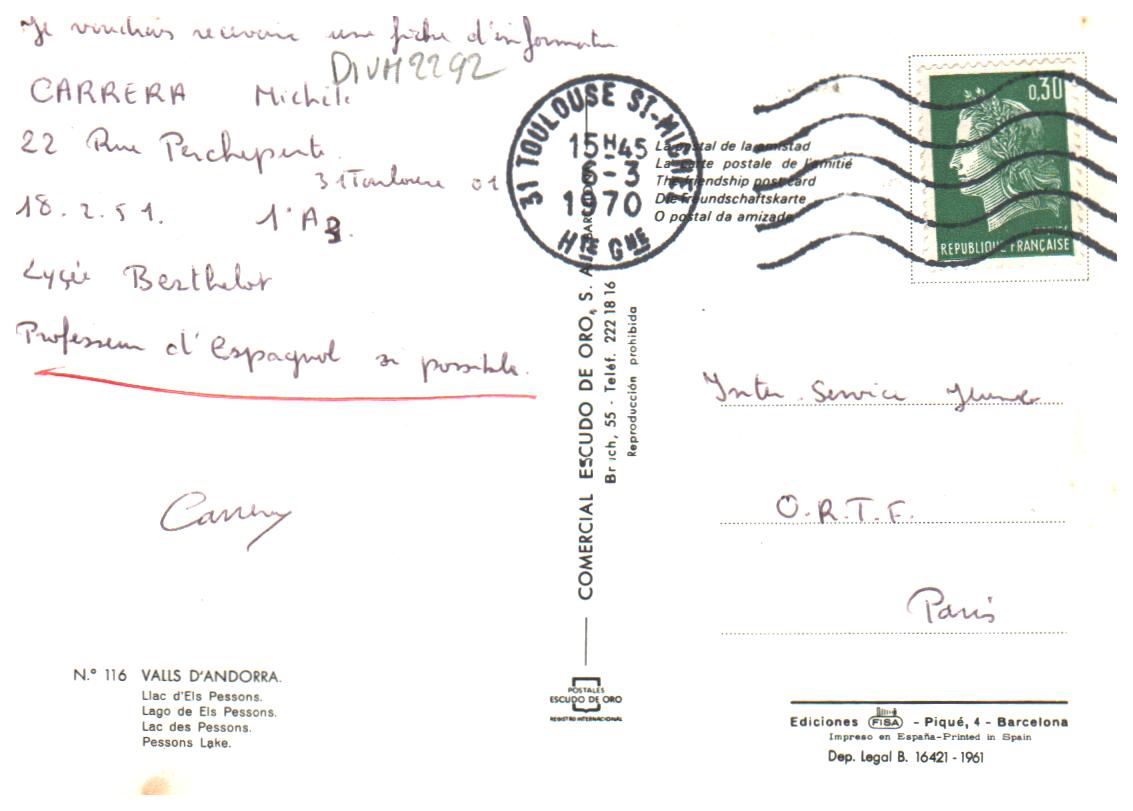 Je voudrais recevoir une fiche d'information
DIVH2292
CARRERA Michèle
22 Rue Perchepinte
31 Toulouse 01
18.2.51. 1° A3.
Lycée Berthelot
Professeur d'Espagnol si possible.
Carrera
N.º 116 VALLS D'ANDORRA.
Llac d'Els Pessons.
Lago de Els Pessons.
Lac des Pessons.
Pessons Lake.
COMERCIAL ESCUDO DE ORO, S. A. BARCELONA
Bruch, 55 - Teléf. 222 18 16
Reproducción prohibida
POSTALES
ESCUDO DE ORO
REGISTRO INTERNACIONAL
31 TOULOUSE ST-MICHEL
15H45
6-3
1970
HTE GNE
La postal de la amistad
La carte postale de l'amitié
The friendship post card
Die freundschaftskarte
O postal da amizade
0,30
REPUBLIQUE FRANÇAISE
Inter Service Jeunes
O.R.T.F.
Paris
Ediciones FISA - Piqué, 4 - Barcelona
Impreso en España-Printed in Spain
Dep. Legal B. 16421 - 1961